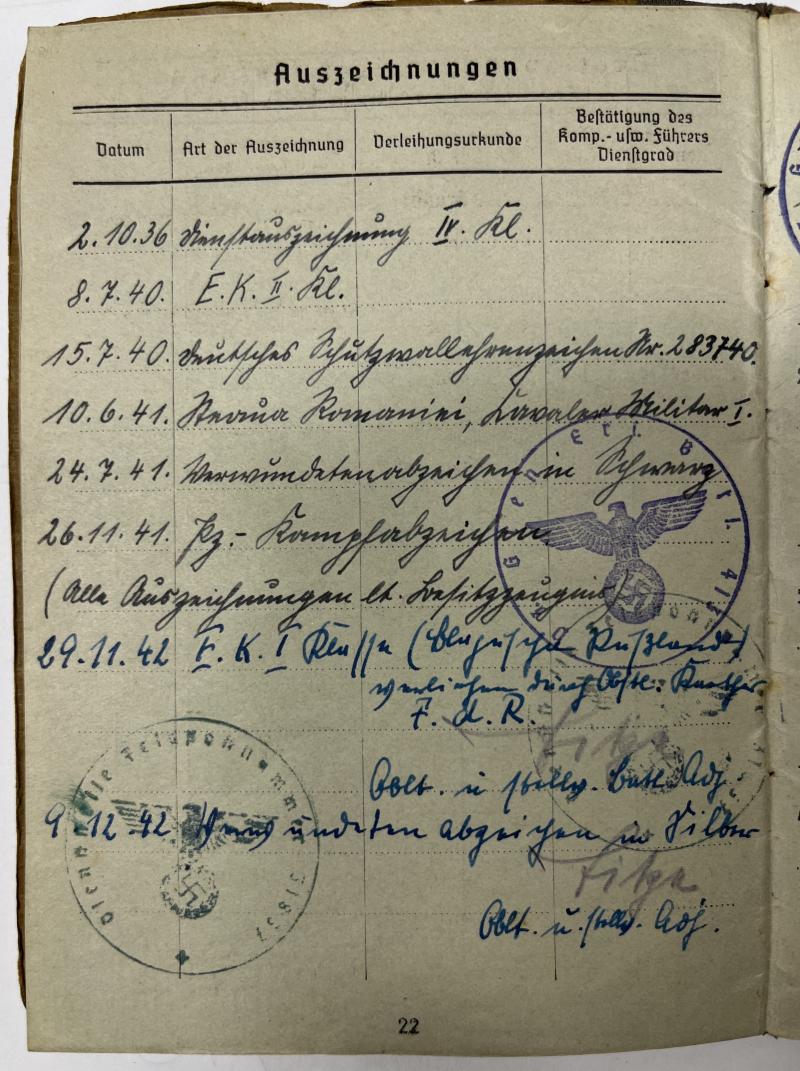 Auszeichnungen
Datum
Art der Auszeichnung
Verleihungsurkunde
Bestätigung des
Komp.- usw. Führers
Dienstgrad
2.10.36 Dienstauszeichnung IV. Kl.
8.7.40. E.K. II. Kl.
15.7.40. Deutsches Schutzwallehrenzeichen Nr. 283740.
10.6.41. Steaua Romaniei, Cavaler Militar I.
24.7.41. Verwundetenabzeichen in Schwarz
26.11.41. Pz.- Kampfabzeichen
(Alle Auszeichnungen lt. Besitzzeugnis)
29.11.42 E.K. I Klasse Rußland)
verliehen durch Obstl.
F.d.R.
Oblt. u stellv. Batl. Adj.
9.12.42 Verwundetenabzeichen in Silber
Oblt. u. stellv. Adj.
Dienststelle Feldpostnummer
22